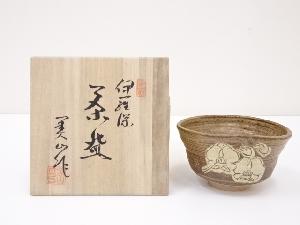 伊羅保
茶碗
美山作